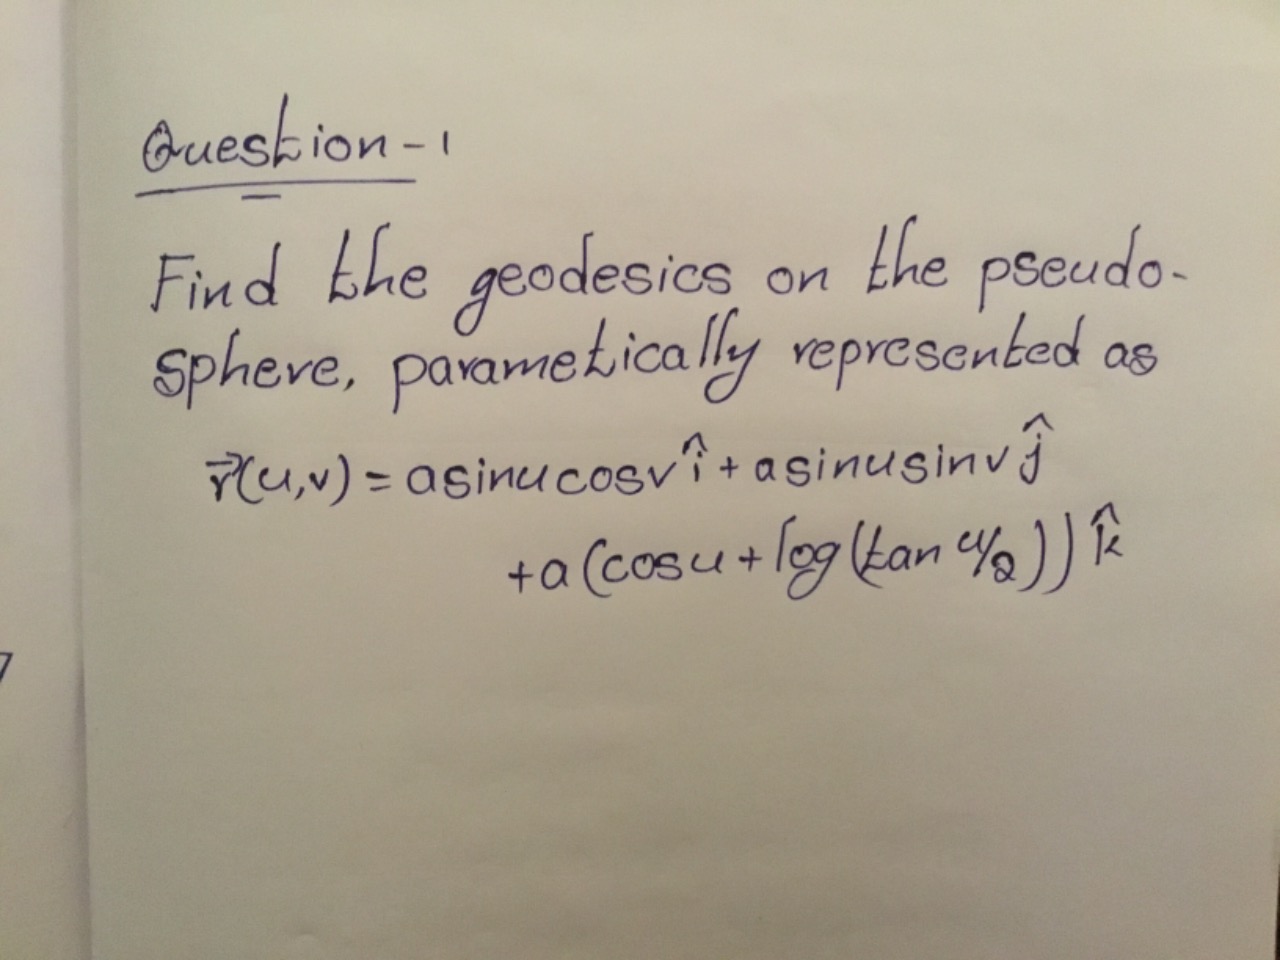 Question-1
Find the geodesics on the pseudo-
sphere, parametically represented as
r⃗(u,v) = a sinu cosv î + a sinu sinv ĵ
+ a (cosu + log(tan u/2)) k̂